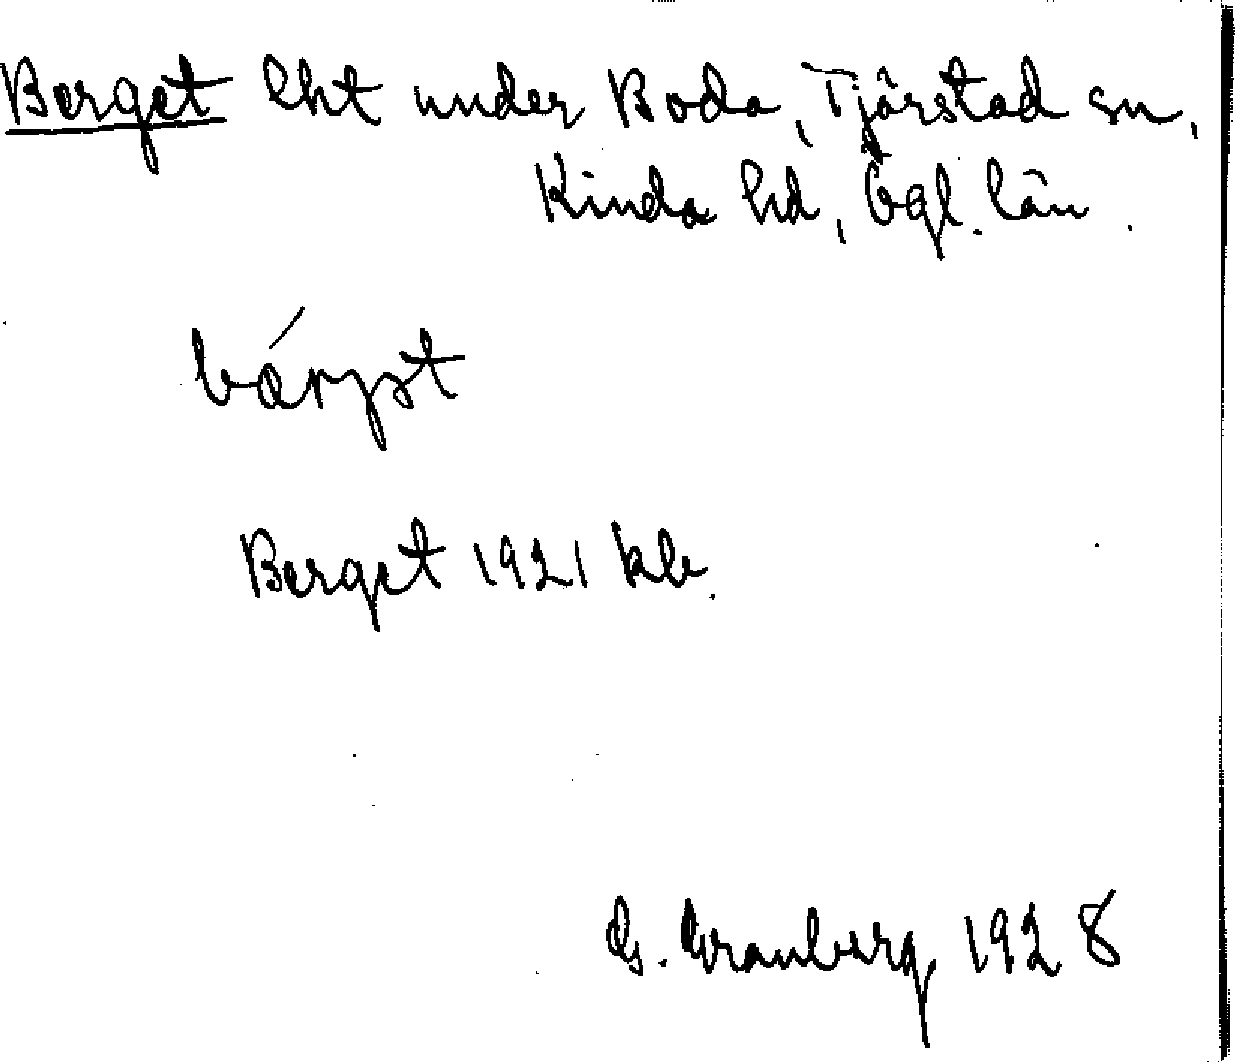 Berget lht under Boda, Tjärstad sn,
Kinda hd, Ögl. län.
bárjət
Berget 1921 kb.
G. Granberg 1928